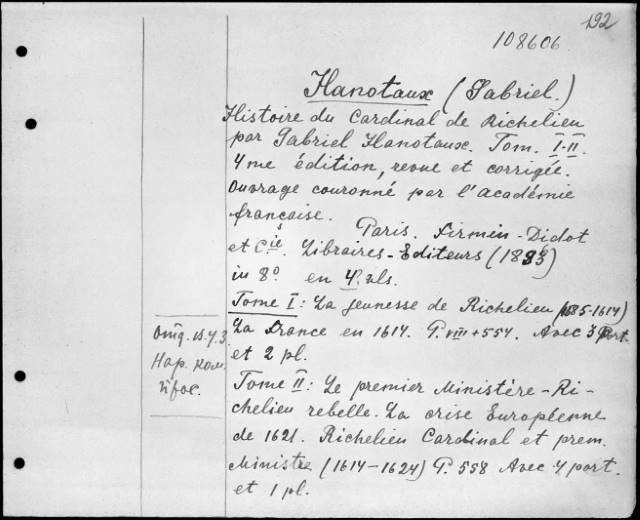 192
108606
Hanotaux (Gabriel.)
Histoire du Cardinal de Richelieu
par Gabriel Hanotaux. Tom. I-II.
4me édition, revue et corrigée.
Ouvrage couronné par l'académie
française.
Paris. Firmin-Didot
et Cie. Libraires-Editeurs (1893)
in 8º en 4º vls.
Tome I: La jeunesse de Richelieu (1585-1614)
La France en 1614. P. VIII+554. Avec 3 port.
et 2 pl.
Tome II: Le premier Ministère-Ri-
chelieu rebelle. La crise Européenne
de 1621. Richelieu Cardinal et prem.
Ministre (1614-1624) P. 558 Avec 4 port.
et 1 pl.
Нар. ком.